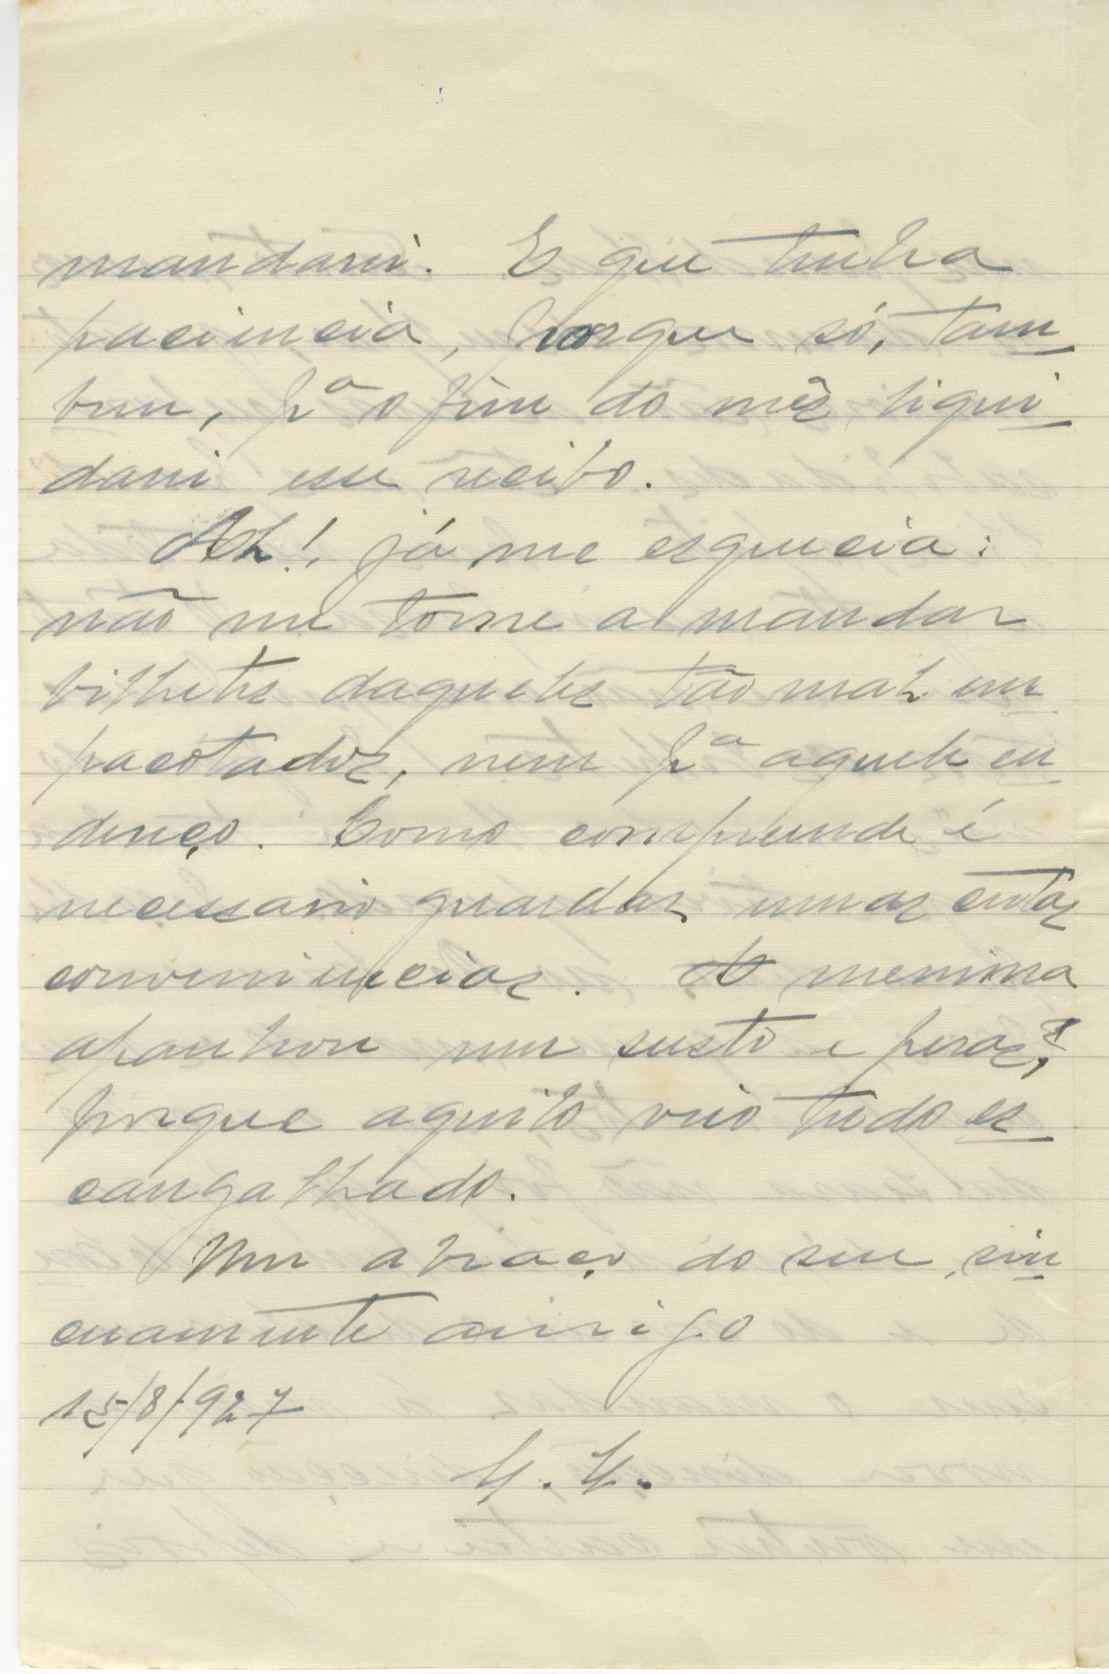 mandarei. E que tenha
paciencia, porque só, tam_
bem, pª o fim do mês liqui_
darei esse recibo.
Ah! já me esquecia:
não me torne a mandar
bilhetes daqueles tão mal em_
pacotados, nem pª aquele en_
dereço. Como compreende é
necessario guardar umas certas
conveniencias. A menina
apanhou um susto e peras,
porque aquilo veio tudo es_
cangalhado.
Um abraço do seu, sin_
ceramente amigo
15/8/927